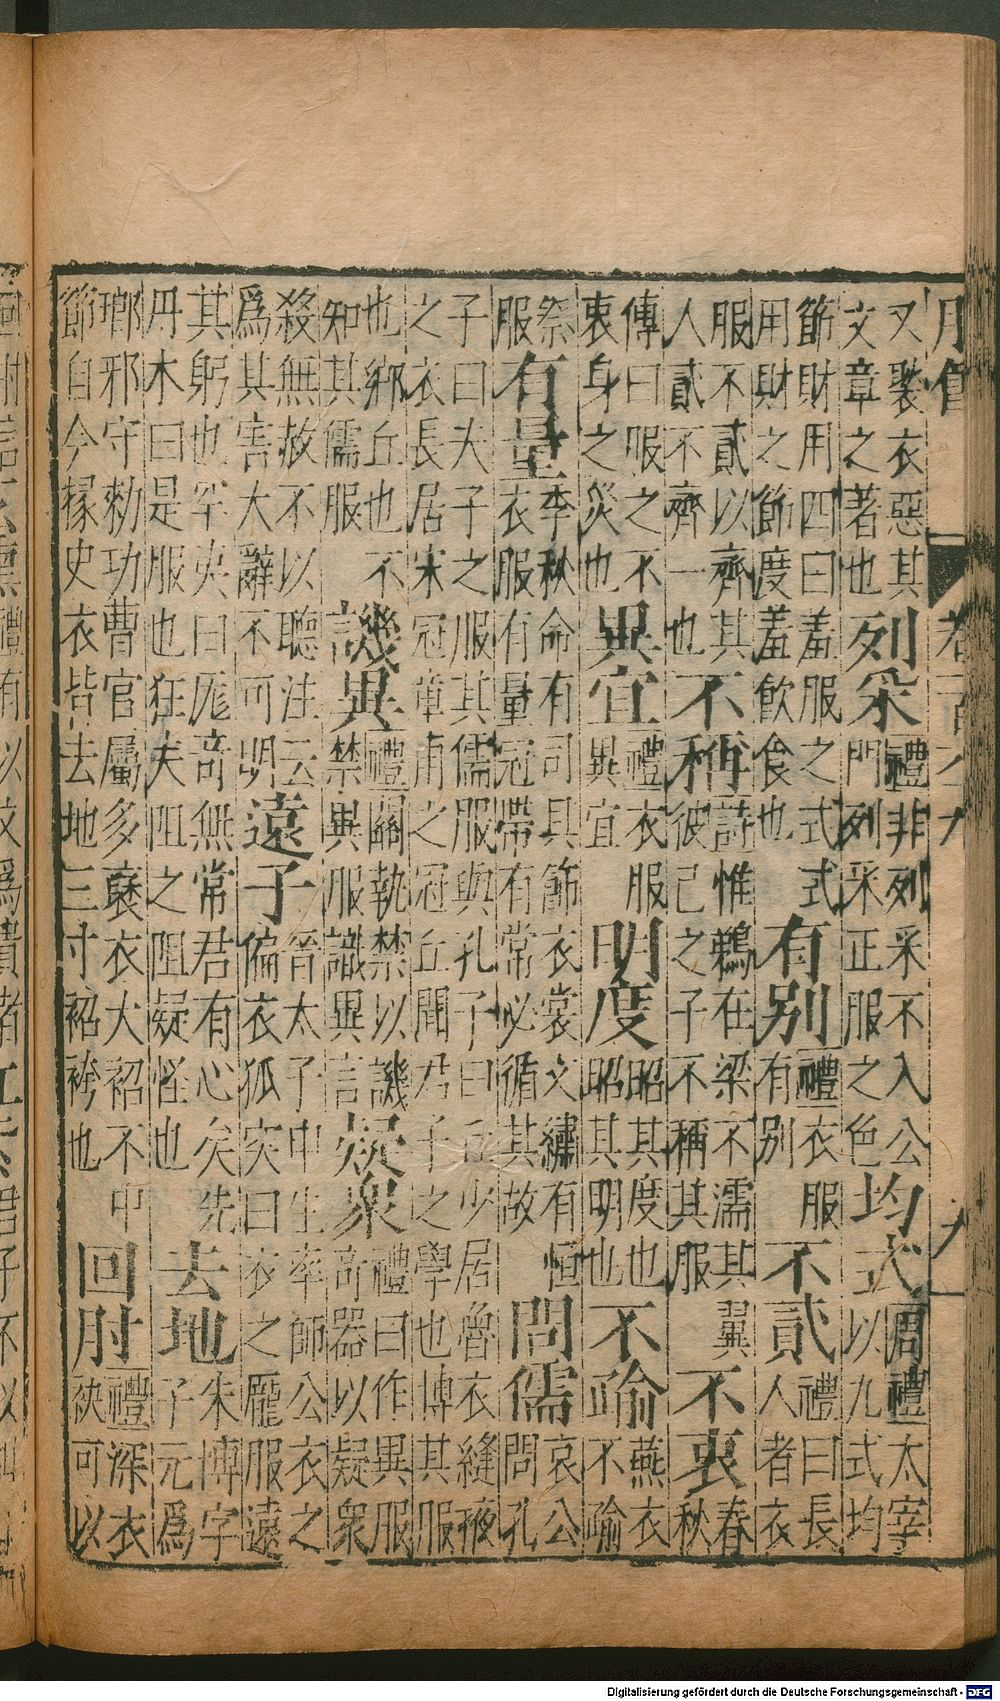 又裂衣惡其
文章之著也
列采
禮非列采不入公
門列采正服之色
均式
周禮太宰
以九式均
節財用四曰羞服之式式
用財之節度羞飲食也
有别
禮衣服
有别
不貳
禮曰長
人者衣
服不貳以齊其
人貳不齊一也
不稱
詩惟鵜在梁不濡其翼
彼己之子不稱其服
不衷
春
秋
傳曰服之不
衷身之災也
異宜
禮衣服
異宜
明度
昭其度也
昭其明也
不踰
燕衣
不踰
祭
服
有量
季秋命有司具飭衣裳文繡有恒
衣服有量冠帶有常必循其故
問儒
哀公
問孔
子曰夫子之服其儒服與孔子曰丘少居魯衣縫掖
之衣長居宋冠章甫之冠丘聞君子之學也博其服
也鄉丘也不
知其儒服
譏異
禮關執禁以譏
禁異服識異言
疑衆
禮曰作異服
奇器以疑衆
殺無故不以聽注云
爲其害大辭不可明
遠子
晉太子申生率師公衣之
偏衣狐突曰衣之厖服遠
其躬也罕夷曰厖奇無常君有心矣先
丹木曰是服也狂夫阻之阻疑怪也
去地
朱博字
子元爲
瑯邪守勑功曹官屬多襃衣大袑不中
節自今掾史衣皆去地三寸袑袴也
回肘
禮深衣
袂可以
Digitalisierung gefördert durch die Deutsche Forschungsgemeinschaft - DFG